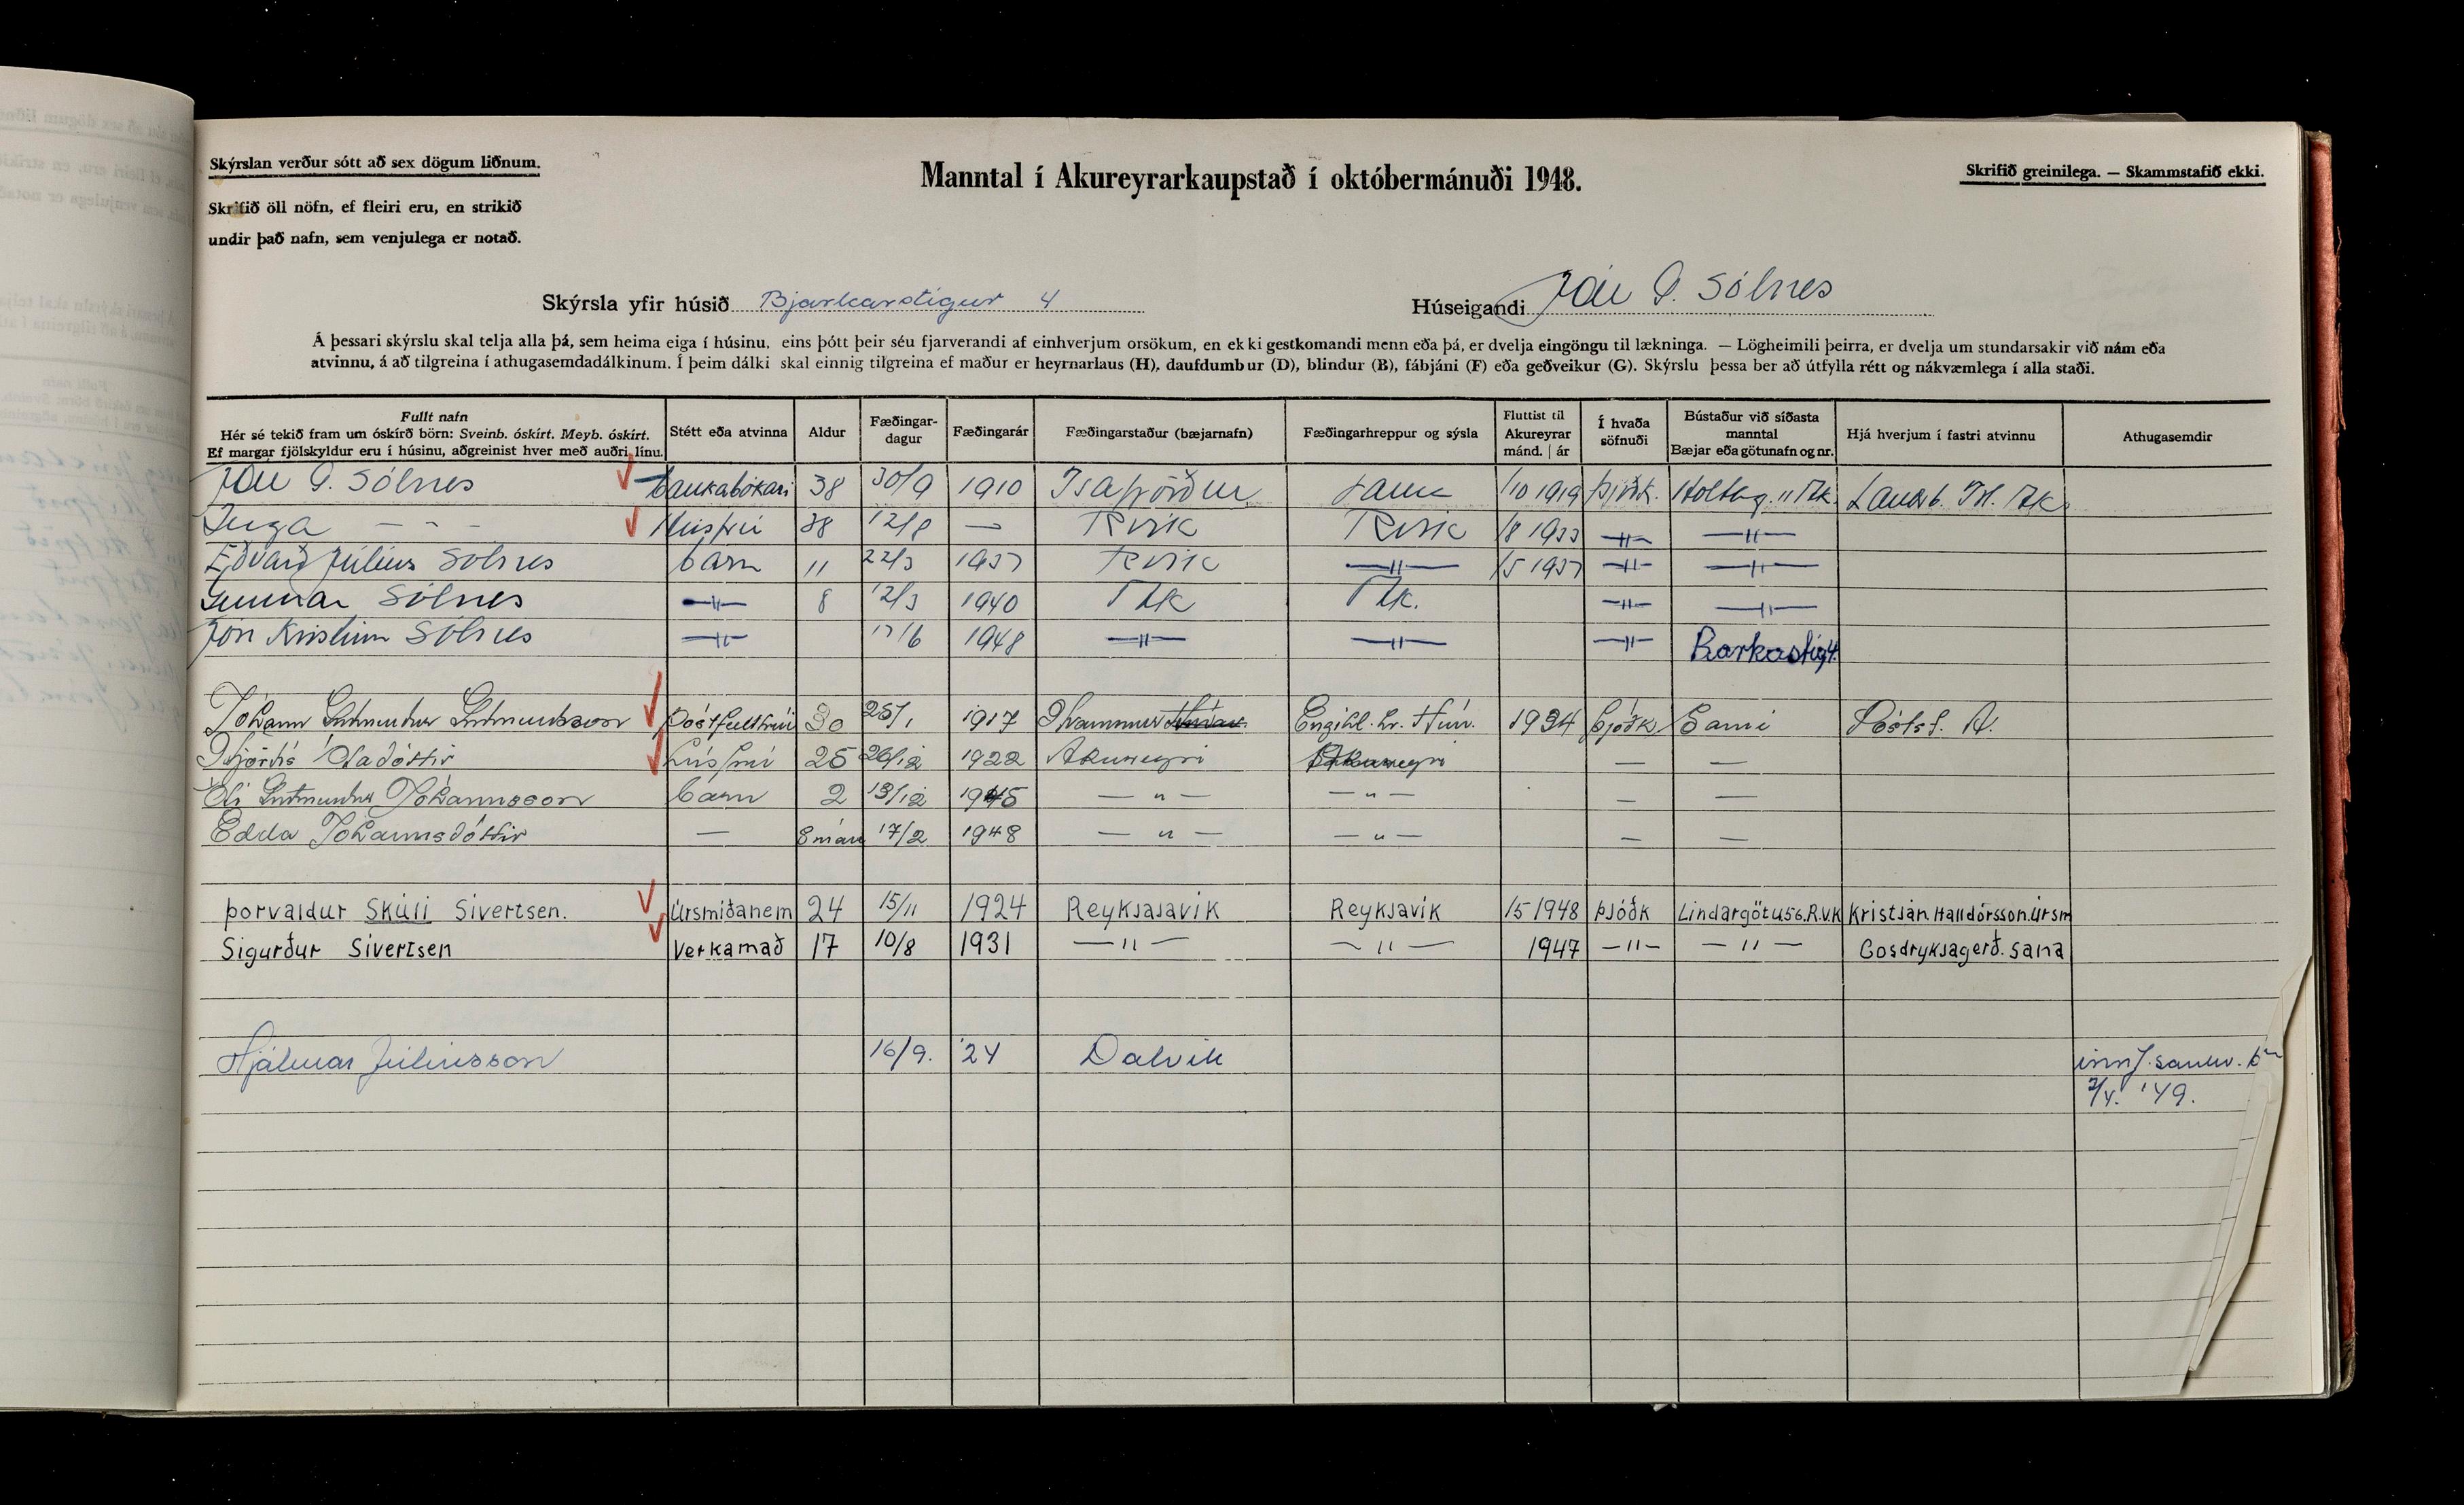 Skýrslan verður sótt að sex dögum liðnum.
Manntal í Akureyrarkaupstað í októbermánuði 1948.
Skrifið greinilega. — Skammstafið ekki.
Skrifið öll nöfn, ef fleiri eru, en strikið
undir það nafn, sem venjulega er notað.
Skýrsla yfir húsið Bjarkarstígur 4
Húseigandi Jón G. Sólnes
Á þessari skýrslu skal telja alla þá, sem heima eiga í húsinu, eins þótt þeir séu fjarverandi af einhverjum orsökum, en ekki gestkomandi menn eða þá, er dvelja eingöngu til lækninga. — Lögheimili þeirra, er dvelja um stundarsakir við nám eða
atvinnu, á að tilgreina í athugasemdadálkinum. Í þeim dálki skal einnig tilgreina ef maður er heyrnarlaus (H), daufdumbur (D), blindur (B), fábjáni (F) eða geðveikur (G). Skýrslu þessa ber að útfylla rétt og nákvæmlega í alla staði.
Fullt nafn
Hér sé tekið fram um óskírð börn: Sveinb. óskírt. Meyb. óskírt.
Ef margar fjölskyldur eru í húsinu, aðgreinist hver með auðri línu.
Stétt eða atvinna
Aldur
Fæðingar-
dagur
Fæðingarár
Fæðingarstaður (bæjarnafn)
Fæðingarhreppur og sýsla
Fluttist til
Akureyrar
mánd. | ár
Í hvaða
söfnuði
Bústaður við síðasta
manntal
Bæjar eða götunafn og nr.
Hjá hverjum í fastri atvinnu
Athugasemdir
Jón G. Sólnes bankabókari 38 30/9 1910 Ísafjörður Sama 1/10 1919 þjóðk. Holtag. 11 Ak. Landsb. Ísl. Ak
Inga — " — Húsfrú 38 12/8 — Rvík Rvík 1/8 1933 —"— —"—
Eðvarð Júlíus Sólnes barn 11 22/3 1937 Rvík —"— 1/5 1937 —"— —"—
Gunnar Sólnes —"— 8 12/3 1940 Ak Ak. —"— —"—
Jón Kristinn Sólnes —"— 17/6 1948 —"— —"— —"— Barkastíg 4.
Jóhann Guðmundur Guðmundsson Póstfulltrúi 30 25/1 1917 Hvammur Engihl. hr. Hún. 1934 þjóðk Sami Pósts. A.
Hjördís Óladóttir húsfrú 25 26/12 1922 Akureyri Akureyri — —
Óli Guðmundur Jóhannsson barn 2 13/12 1945 — " — — " — — —
Edda Jóhannsdóttir — 8 mán 17/2 1948 — " — — " — — —
Þorvaldur Skúli Sivertsen. Úrsmiðanem 24 15/11 1924 Reykjajavík Reykjavík 15 1948 Þjóðk Lindargötu 56. R.V.K Kristján. Halldórsson. Úrsm
Sigurður Sivertsen Verkamað 17 10/8 1931 — " — — " — 1947 — " — — " — Gosdrykjagerð. Sana
Hjálmar Júlíusson 16/9. '24 Dalvík innf. samkv.
2/4. '49.